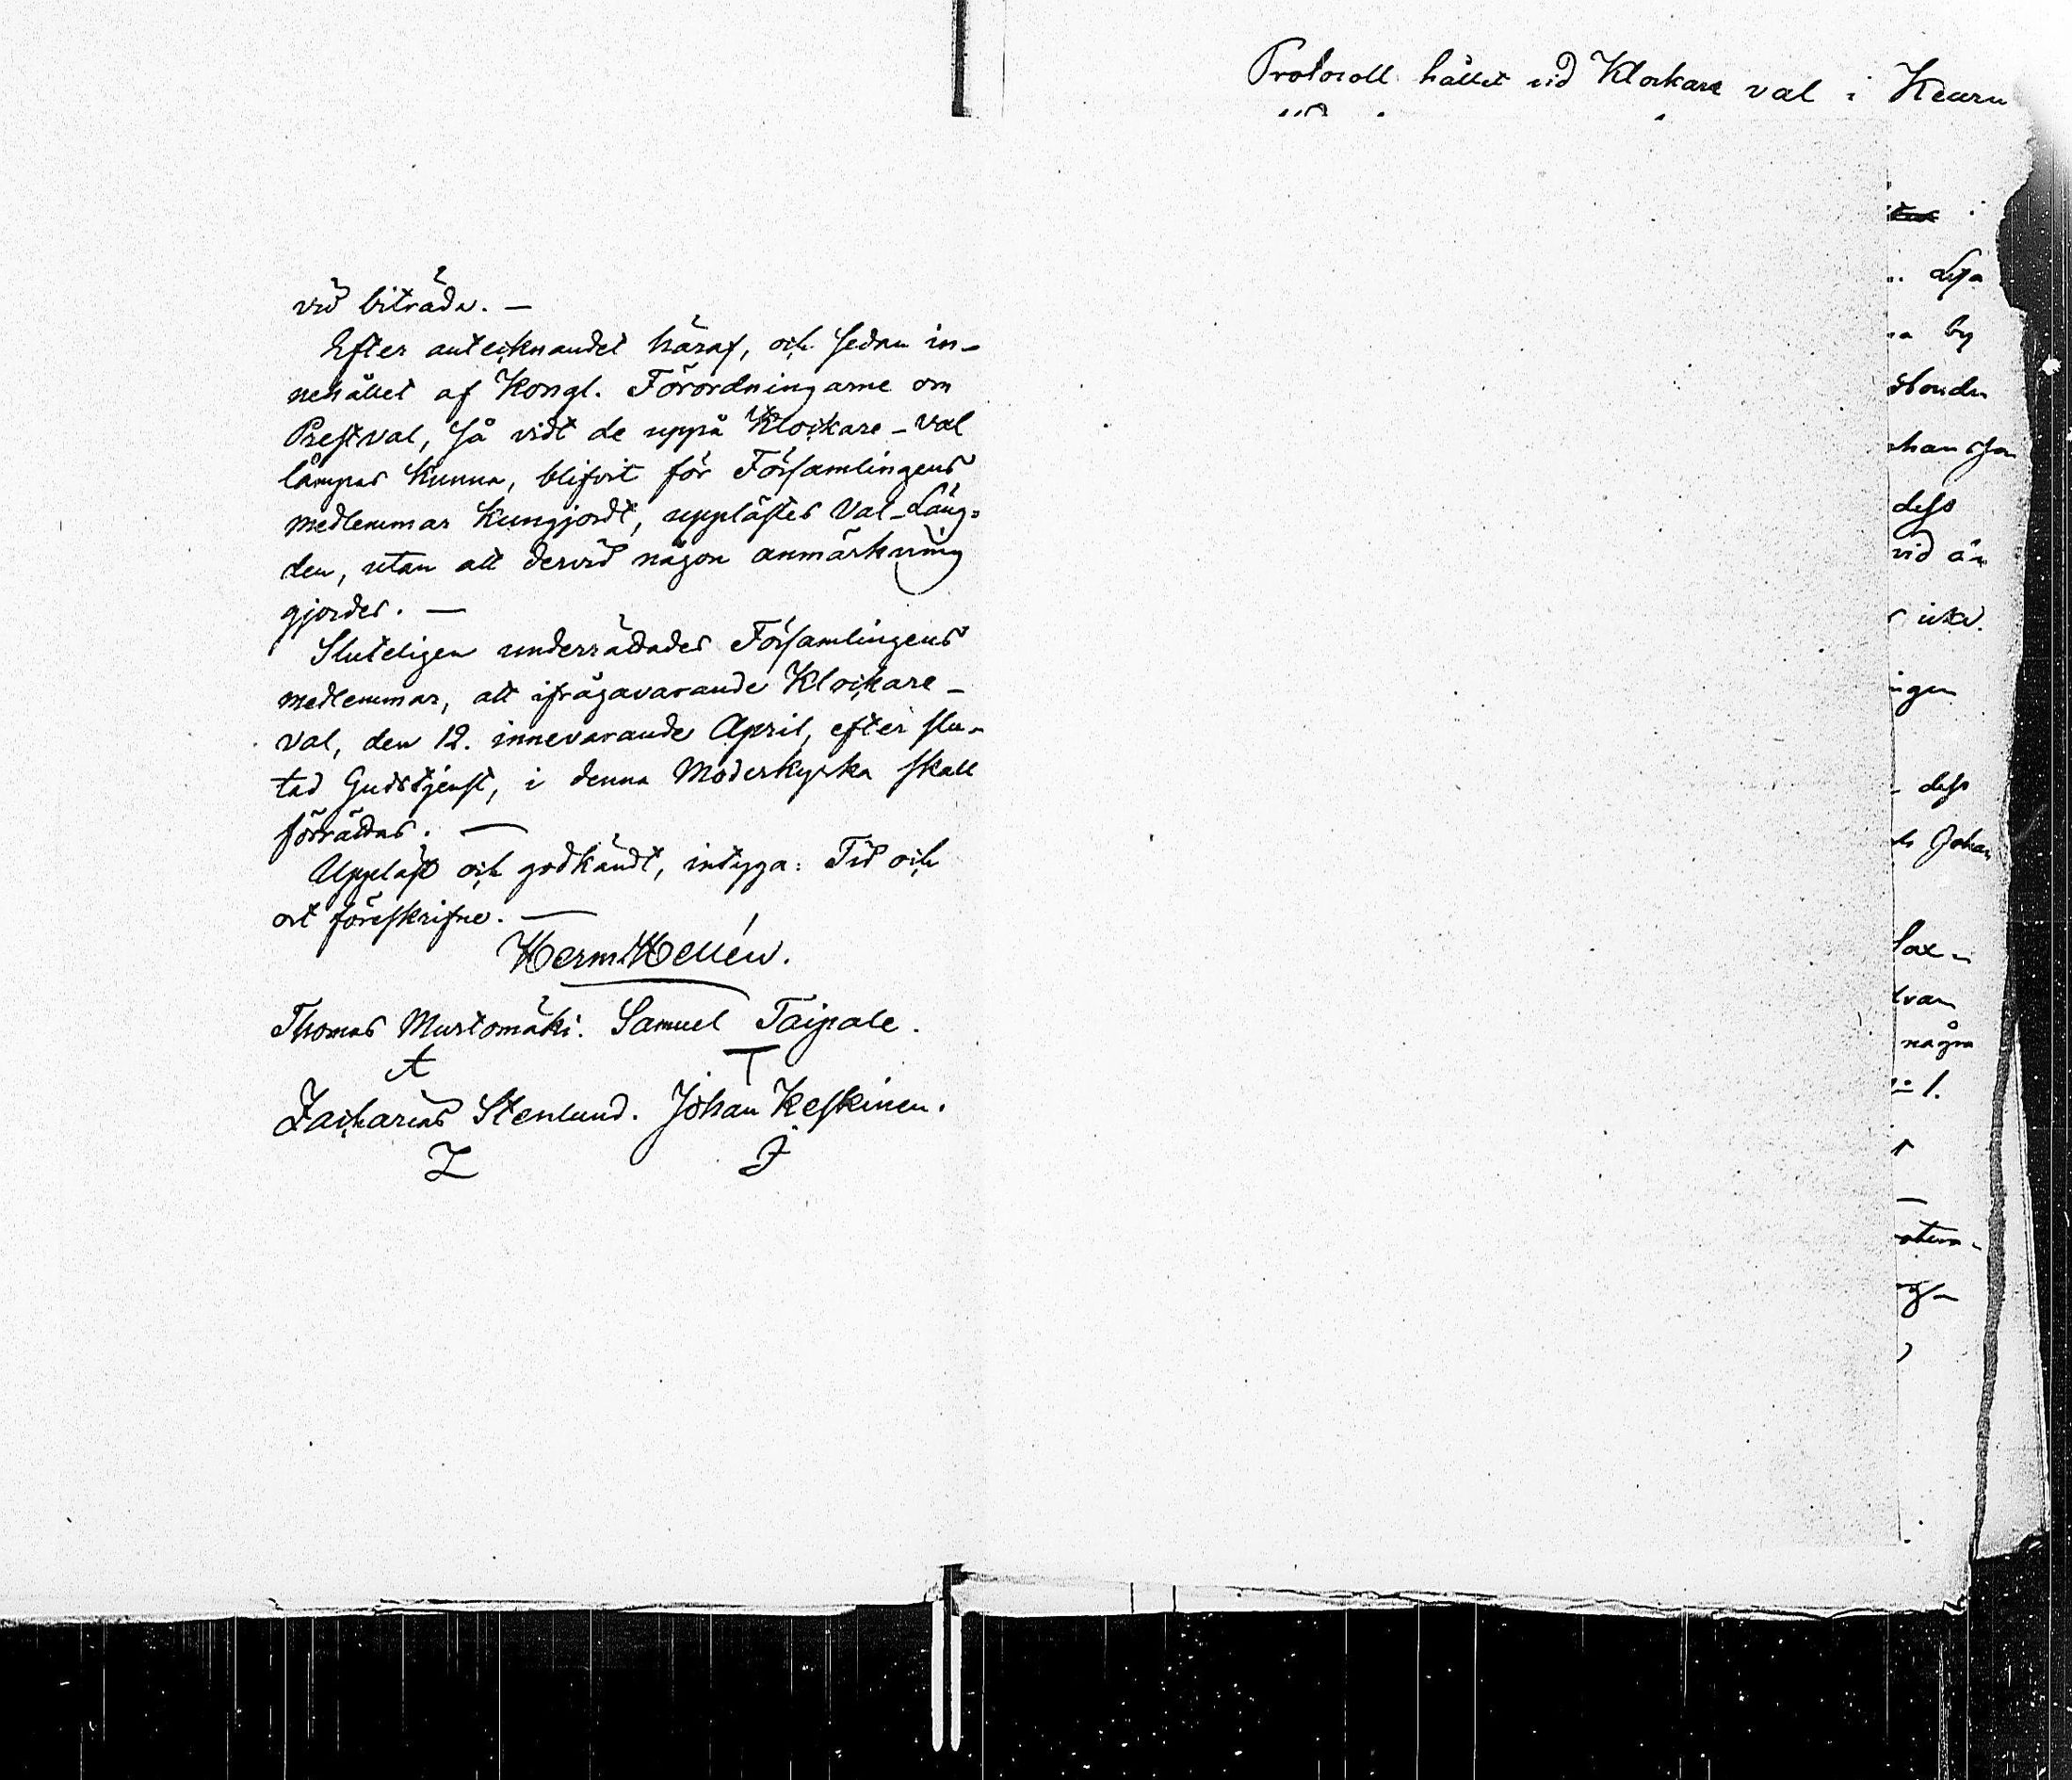 vid biträda. —
Efter antecknandet häraf, och sedan in-
nehållet af Kongl. Förordningarne om
Prestval, så vidt de uppå Klockare-val
lämpas kunna, blifvit för Församlingens
medlemmar kungjordt, upplästes Val-Läng-
den, utan att dervid någon anmärkning
gjordes. —
Sluteligen underrättades Församlingens
medlemmar, att ifrågavarande Klockare-
val, den 12. innevarande April, efter slu-
tad Gudstjenst, i denna Moderkyrka skall
förrättas. —
Uppläst och godkändt, intyga: Tid och
ort föreskrifne. —
Herm. Hellén.
Thomas Mustomäki. Samuel Taipale.
A T
Zacharias Stenlund. Johan Keskinen.
Z J
Protocoll hållit vid Klockare val i Keuru
by
dess
vid
dess
Johan
några
1.